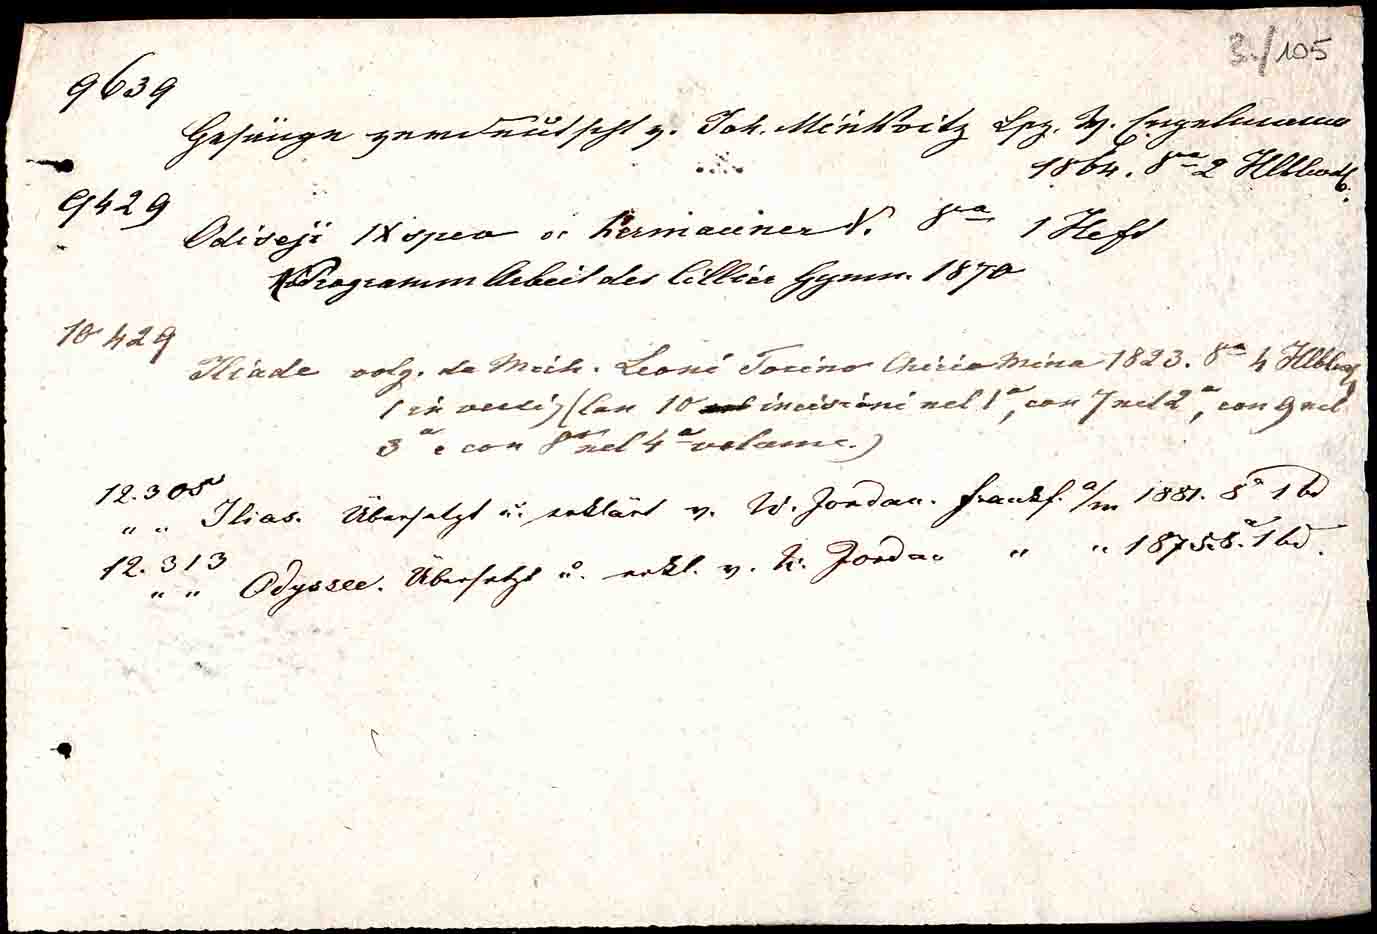 3./105
9639
Gesänge verdeutscht v. Joh. Minkwitz Lpz. W. Engelmann
1864. 8va 2 Hlblwdb.
9429
Odiseji IX speo Kermauner V. 8va 1 Heft
Programm Arbeit des Cillier Gymn. 1870
10429
Iliade volg. da Mich. Leoni Torino Chirio Mina 1823. 8va 4 Hlblwdb
in versi) (con 10 incisioni nel 1a, con 7 nel 2a, con 9 nel
3a e con 8 nel 4a volume.)
12.308
" " Ilias. Übersetzt u. erklärt v. W. Jordan. Frankf. a/m 1881. 8a 1 bd
12.313
" " Odyssee. Übersetzt u. erkl. v. W. Jordan " " 1875. 8a. 1 bd.